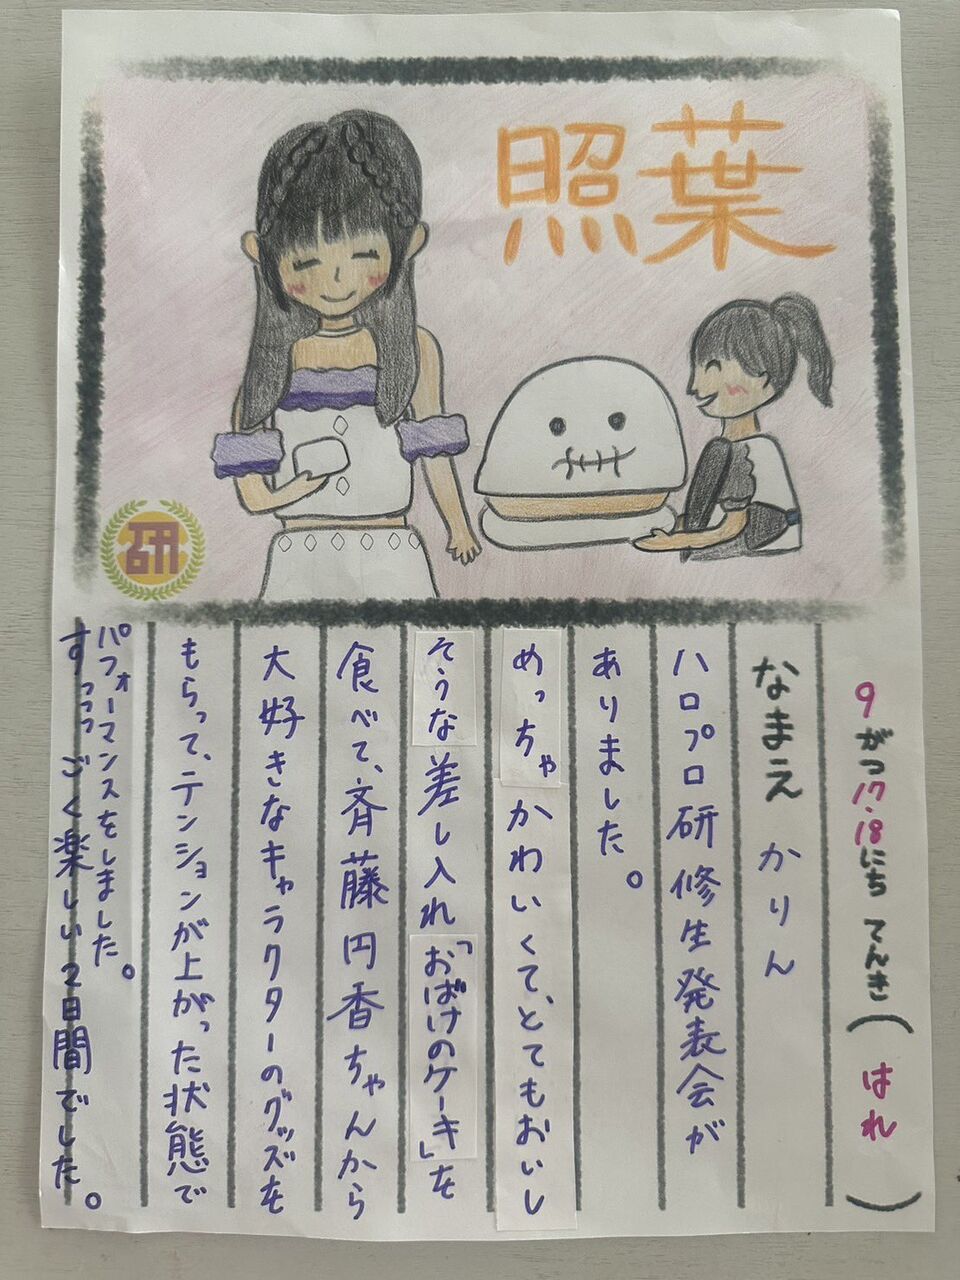 照葉
研
9がつ17・18にち てんき(はれ)
なまえ かりん
ハロプロ研修生発表会が
ありました。
めっちゃかわいくて、とてもおいし
そうな差し入れ「おばけのケーキ」を
食べて、斉藤円香ちゃんから
大好きなキャラクターのグッズを
もらって、テンションが上がった状態で
パフォーマンスをしました。
すっっっごく楽しい2日間でした。